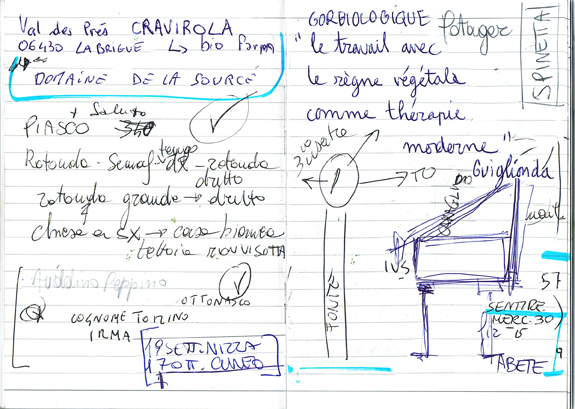 Val des Prés CRAVIROLA
06430 LA BRIGUE ↳ bio
DOMAINE DE LA SOURCE
+ Saluto
PIASCO
Rotonda - Semaf - dx - rotonda
dritto
rotonda grande → dritto
chiesa a SX → casa bianca
tettoia
Peppino
OTTONASCO
COGNOME TORINO
IRMA
19 SETT. NIZZA
17 OTT. CUNEO
GORBIOLOGIQUE
Potager
"le travail avec
le règne végétale
comme thérapie
moderne"
SPINETTA
→ TO
Guiglionda
CARAGLIO
PONTE
IVS
57
SENTIRE
MERC. 30
12 - 15
9
ABETE